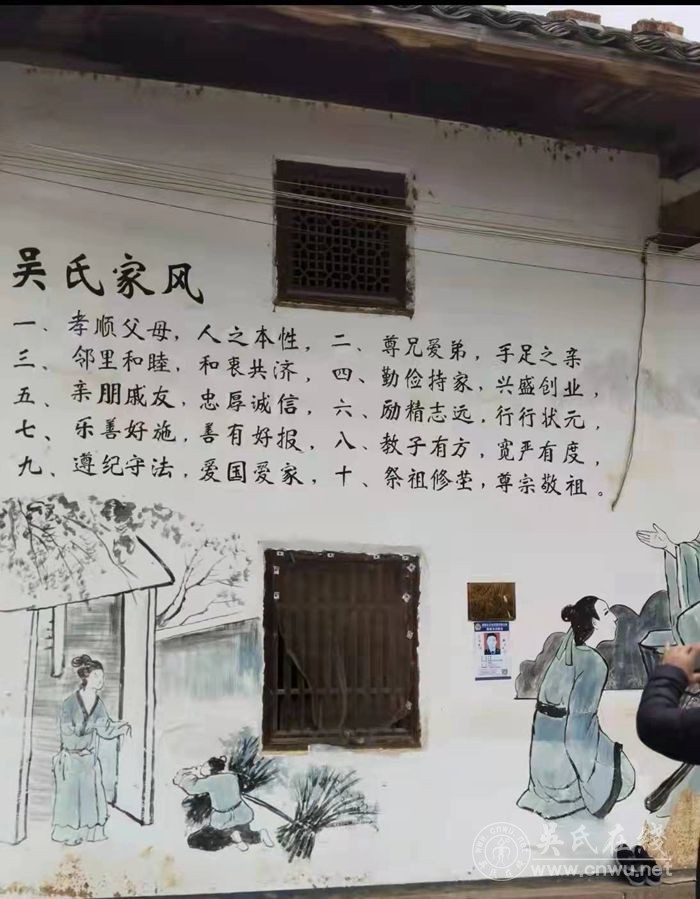 吴氏家风
一、孝顺父母，人之本性，二、尊兄爱弟，手足之亲
三、邻里和睦，和衷共济，四、勤俭持家，兴盛创业，
五、亲朋戚友，忠厚诚信，六、励精志远，行行状元，
七、乐善好施，善有好报，八、教子有方，宽严有度，
九、遵纪守法，爱国爱家，十、祭祖修茔，尊宗敬祖。
吴氏在线
www.cnwu.net